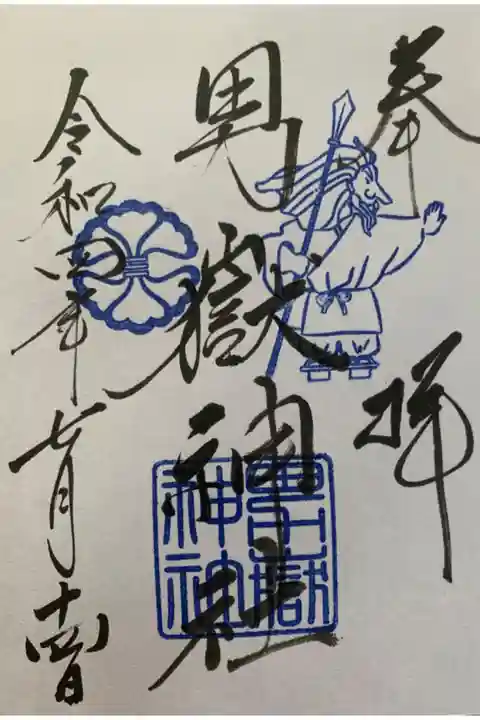 奉拝
男嶽神社
男嶽神社
令和四年七月十四日